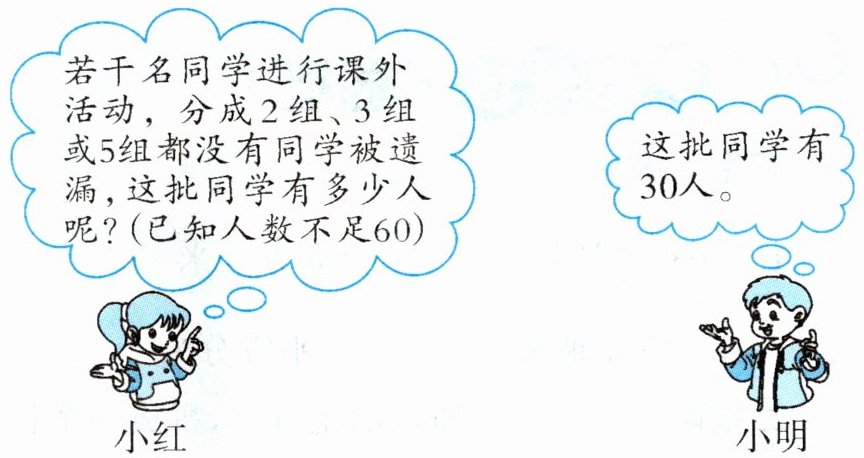 若干名同学进行课外
活动，分成2组、3组
或5组都没有同学被遗
漏，这批同学有多少人
呢？(已知人数不足60)
这批同学有
30人。
小红
小明